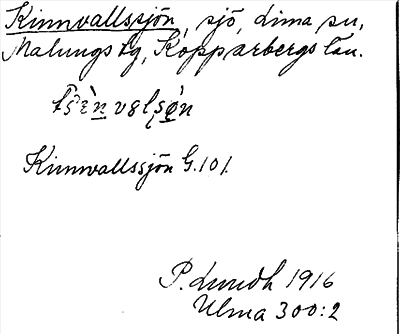 Kinnvallssjön, sjö, Lima sn,
Malungs tg, Kopparbergs län.
Kinnvallssjön G.101.
P. Lundh 1916
Ulma 300:2